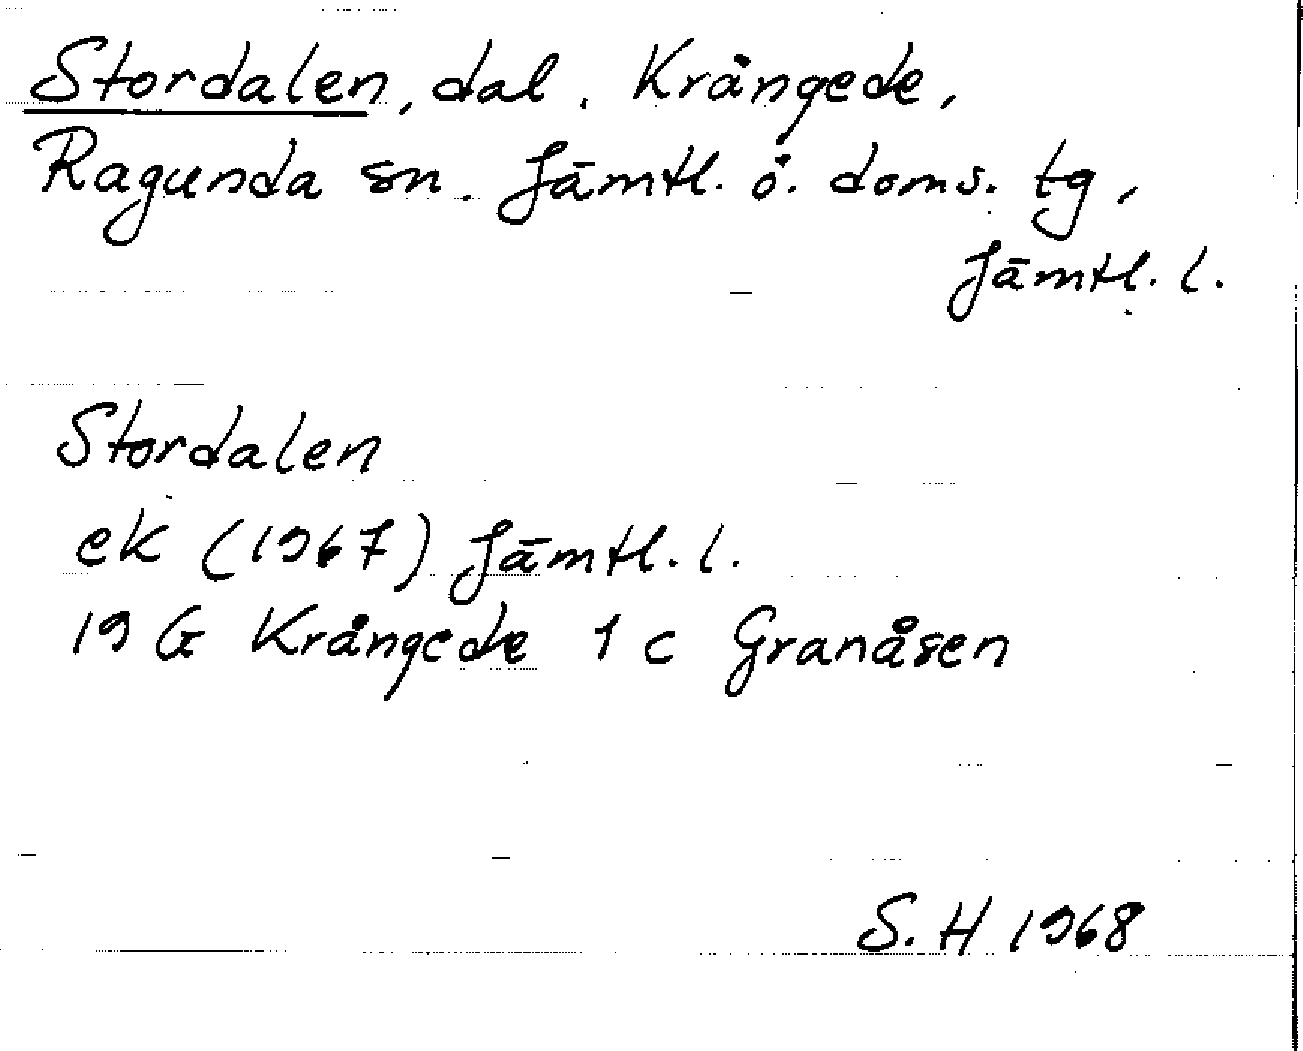 Stordalen, dal. Krångede,
Ragunda sn. Jämtl. ö. doms. tg,
Jämtl. l.
Stordalen
ek (1967) Jämtl. l.
19 G Krångede 1 c Granåsen
S. H 1968